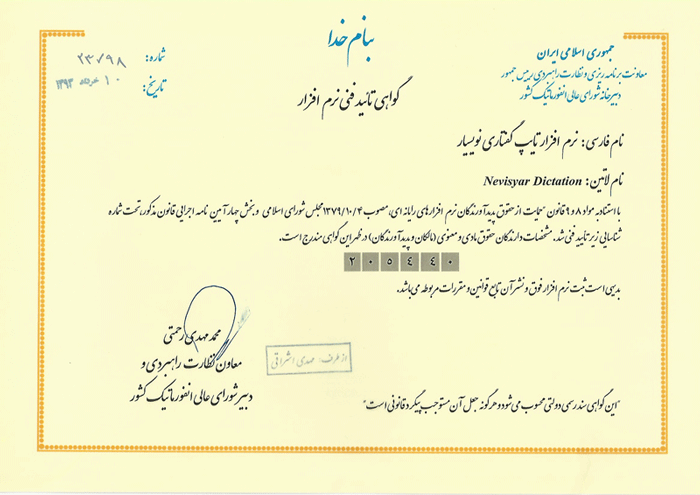 بنام خدا
جمهوری اسلامی ایران
معاونت برنامه ریزی و نظارت راهبردی رییس جمهور
دبیرخانه شورای عالی انفورماتیک کشور
شماره: ۲۳/۷۹۸
تاریخ: ۱۰ خرداد ۱۳۹۳
گواهی تأئید فنی نرم افزار
نام فارسی: نرم افزار تایپ گفتاری نویسیار
نام لاتین: Nevisyar Dictation
با استناد به مواد ۸ و ۹ قانون "حمایت از حقوق پدیدآورندگان نرم افزارهای رایانه ای، مصوب ۱۳۷۹/۱۰/۴ مجلس شورای اسلامی و بخش چهار آیین نامه اجرایی قانون مذکور، تحت شماره
شناسایی زیر تأیید فنی شد. مشخصات دارندگان حقوق مادی و معنوی (مالکان و پدیدآورندگان) در ظهر این گواهی مندرج است.
۲۰۵۴۴۰
بدیهی است ثبت نرم افزار فوق و نشر آن تابع قوانین و مقررات مربوطه می باشد.
محمد مهدی رحمتی
معاون نظارت راهبردی و
دبیر شورای عالی انفورماتیک کشور
از طرف: مهدی اشراقی
"این گواهی سند رسمی دولتی محسوب می شود و هرگونه جعل آن مستوجب پیگرد قانونی است"